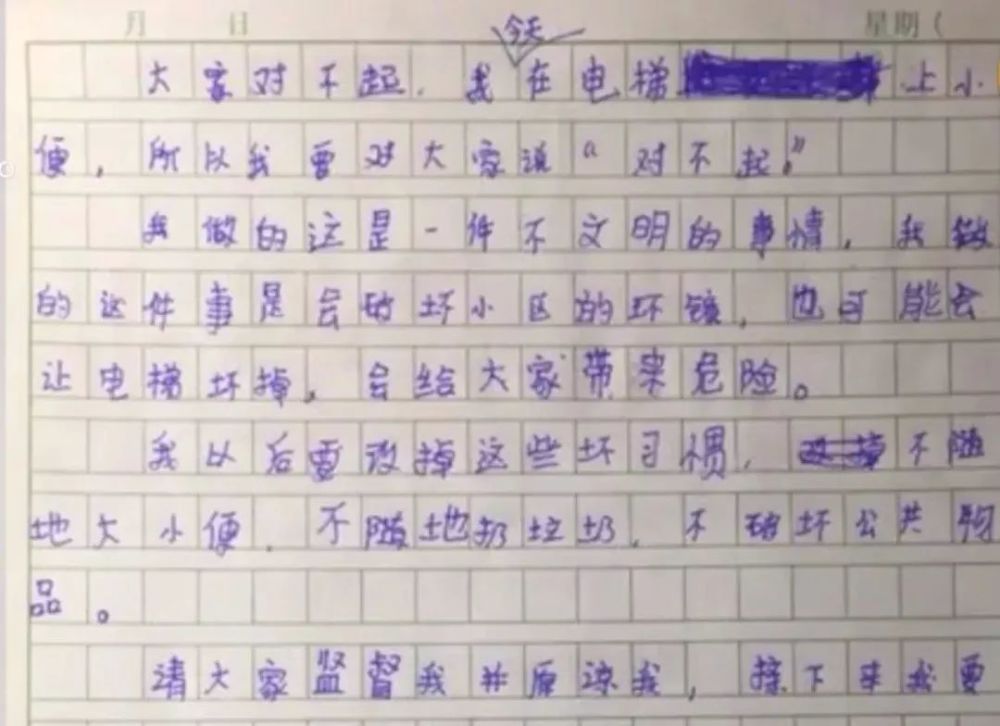 月 日 星期(
今天
大家对不起，我在电梯上小
便，所以我要对大家说“对不起。”
我做的这是一件不文明的事情，我做
的这件事是会破坏小区的环镜，也可能会
让电梯坏掉，会给大家带来危险。
我以后要改掉这些坏习惯，不随
地大小便，不随地扔垃圾，不破坏公共物
品。
请大家监督我并原谅我，接下来我要